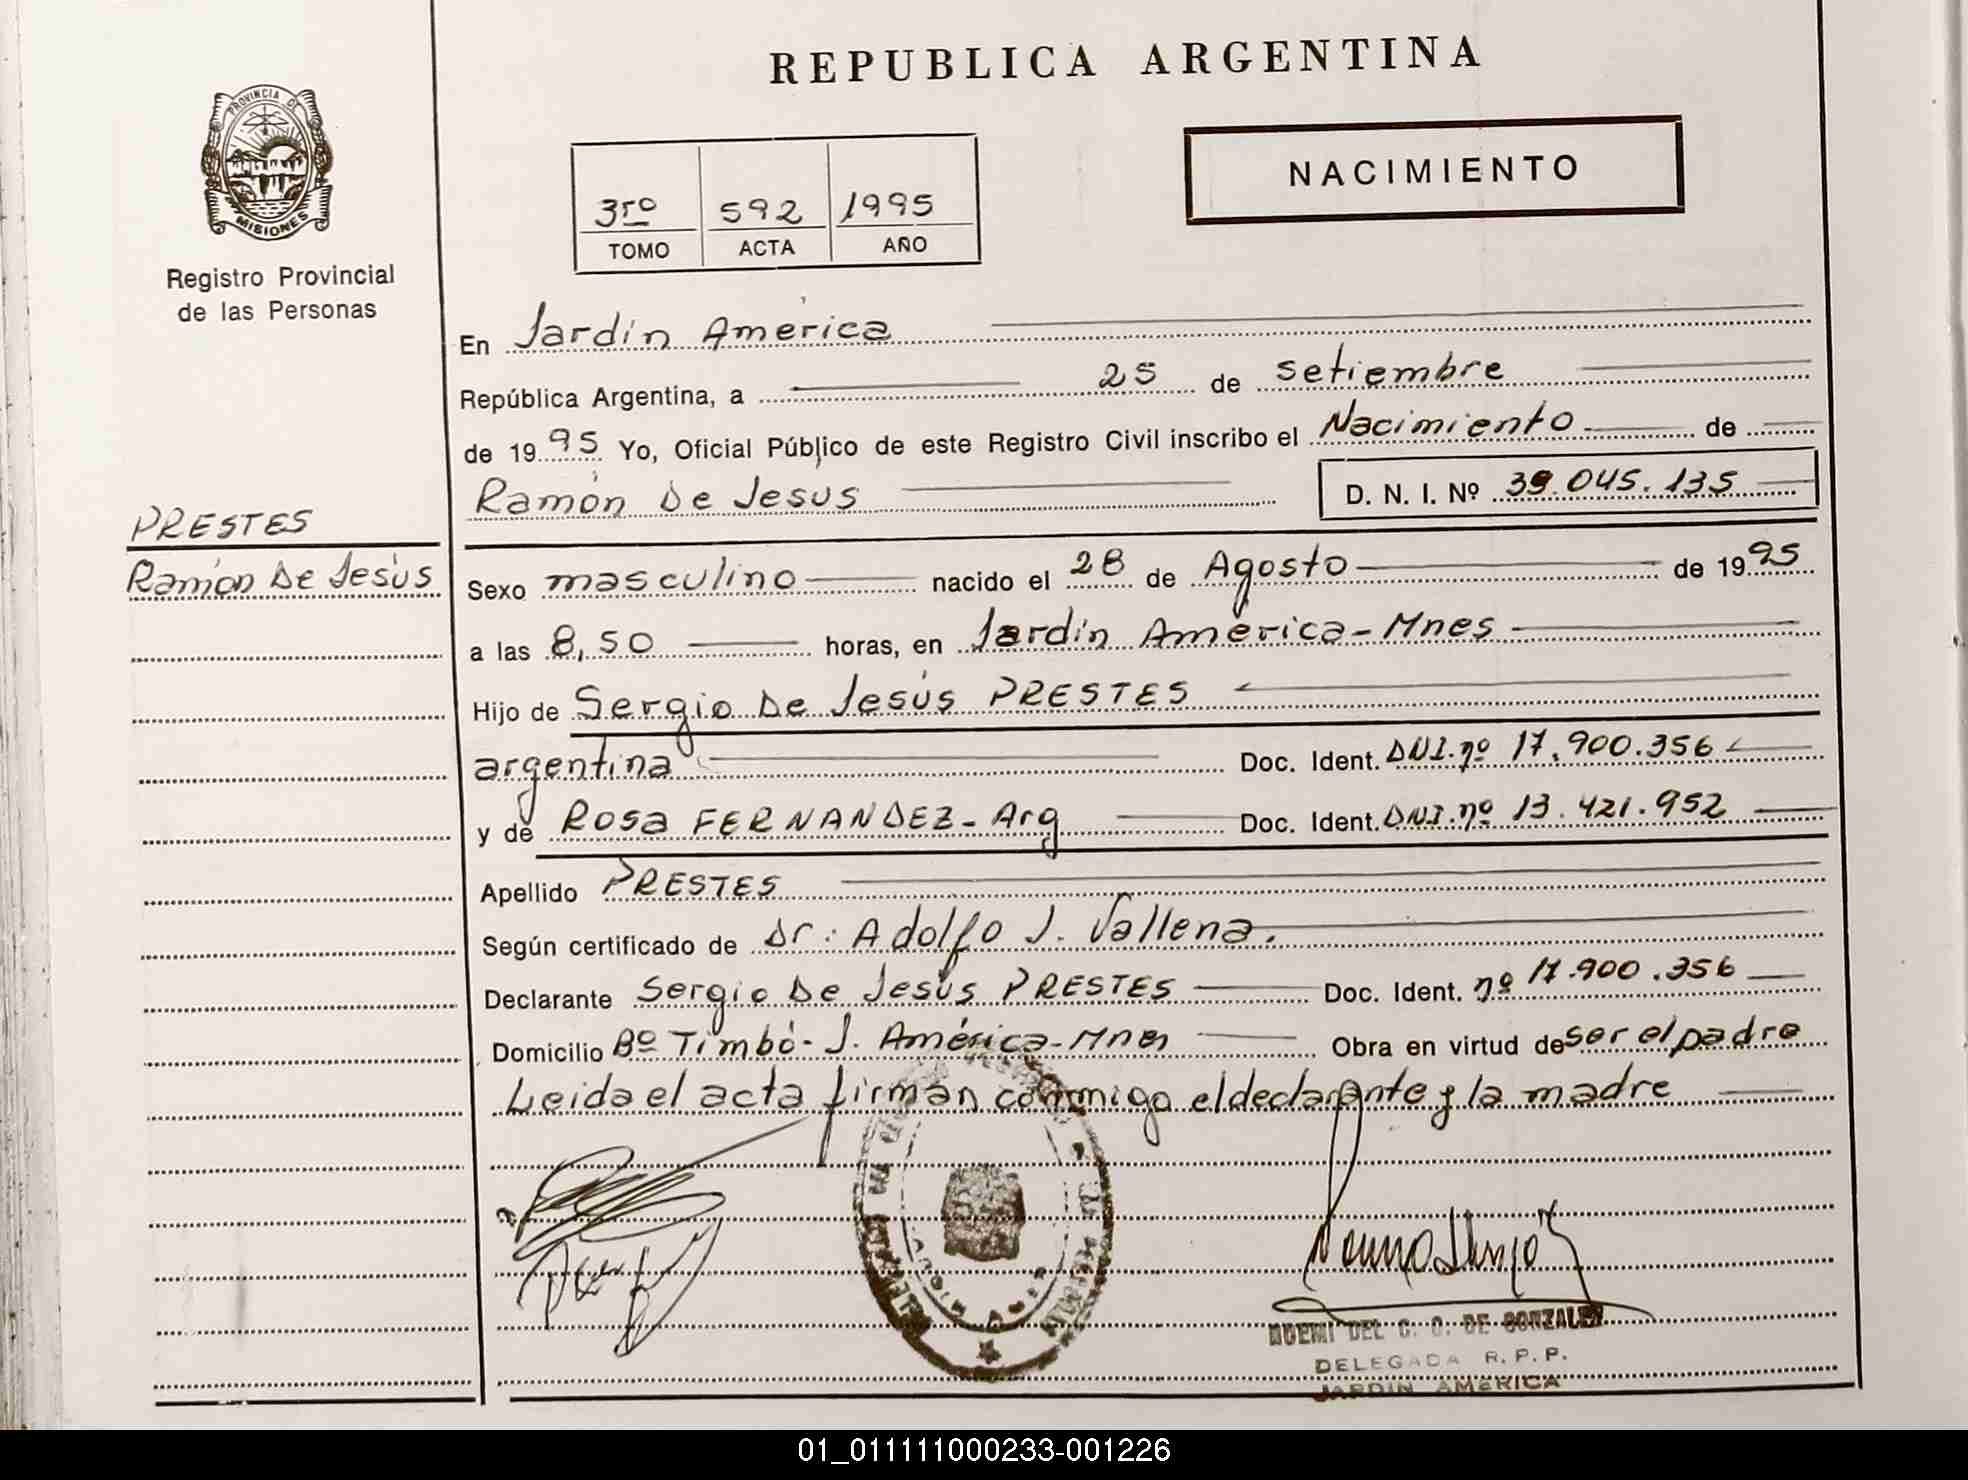 REPUBLICA ARGENTINA
PROVINCIA DE
MISIONES
Registro Provincial
de las Personas
NACIMIENTO
3ro 592 1995
TOMO ACTA AÑO
En Jardín América
República Argentina, a 25 de setiembre
de 1995 Yo, Oficial Público de este Registro Civil inscribo el Nacimiento de
Ramón De Jesús D. N. I. Nº 39.045.135
PRESTES
Ramón De Jesús
Sexo masculino nacido el 28 de Agosto de 1995
a las 8,50 horas, en Jardín América - Mnes
Hijo de Sergio De Jesús PRESTES
argentina Doc. Ident. DNI. nº 17.900.356
y de Rosa FERNANDEZ - Arg Doc. Ident. DNI. nº 13.421.952
Apellido PRESTES
Según certificado de Dr: Adolfo J. Vallena.
Declarante Sergio De Jesús PRESTES Doc. Ident. nº 17.900.356
Domicilio Bº Timbó - J. América - Mnes Obra en virtud de ser el padre
Leida el acta firman conmigo el declarante y la madre
DE GONZALEZ
DELEGADA R. P. P.
JARDIN AMERICA
01_011111000233-001226